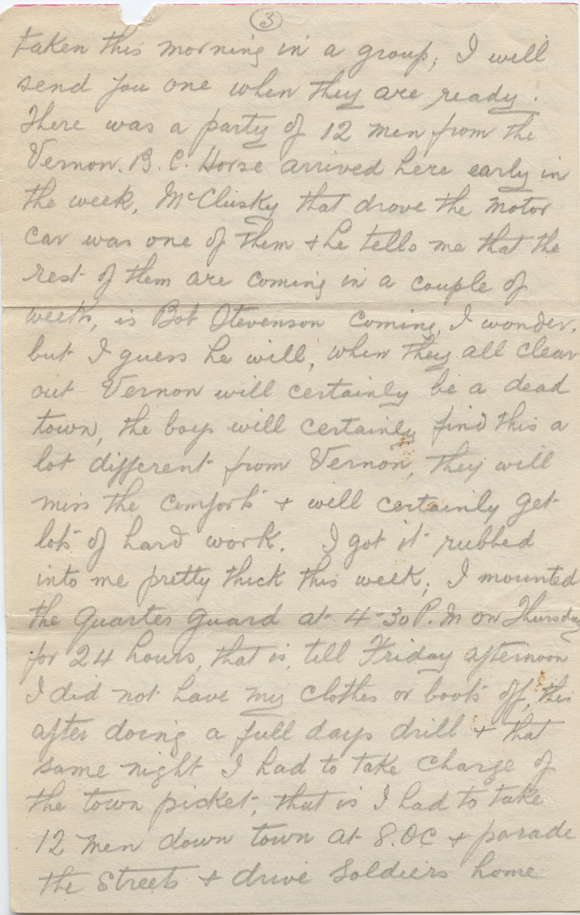 3
taken this morning in a group, I will
send you one when they are ready.
There was a party of 12 men from the
Vernon. B. C. Horse arrived here early in
the week, McClusky that drove the motor
car was one of them & he tells me that the
rest of them are coming in a couple of
weeks, is Bob Stevenson coming, I wonder,
but I guess he will, when they all clear
out Vernon will certainly be a dead
town, the boys will certainly find this a
lot different from Vernon, they will
miss the comforts & will certainly get
lots of hard work. I got it rubbed
into me pretty thick this week; I mounted
the Quarter Guard at 4-30 P.M on Thursday
for 24 hours, that is, till Friday afternoon
I did not have my clothes or boots off, this
after doing a full days drill & that
same night I had to take charge of
the town picket, that is I had to take
12 men down town at 8.OC & parade
the Streets & drive Soldiers home